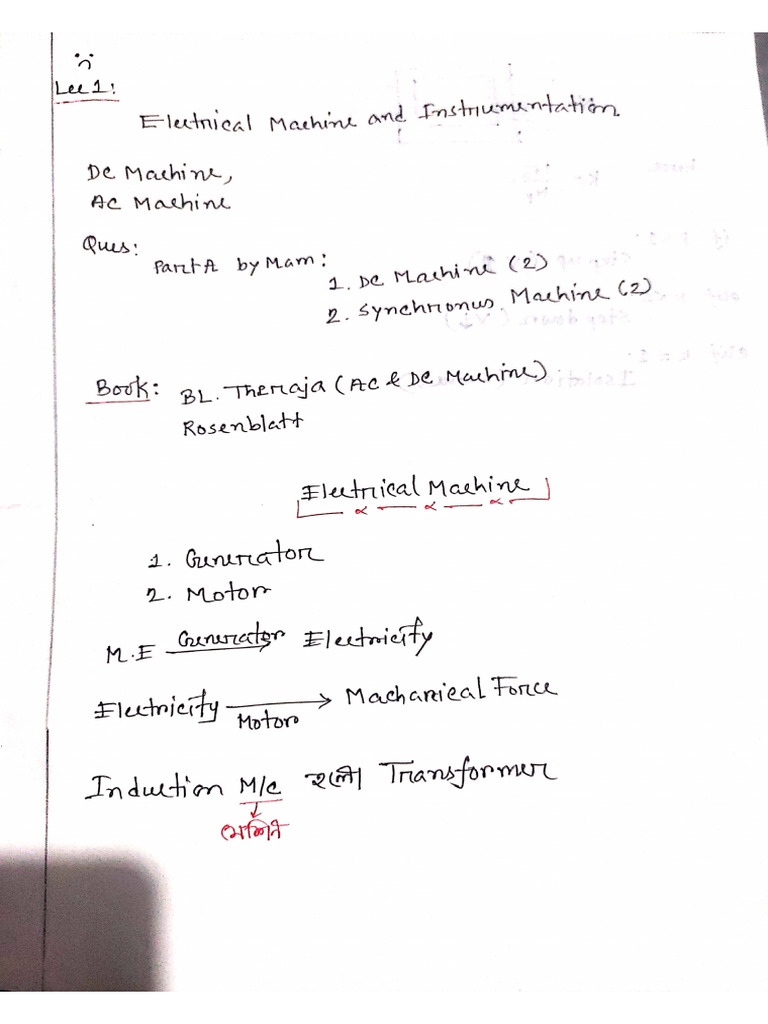 Lec 1:
Electrical Machine and Instrumentation.
DC Machine,
AC Machine
Ques:
Part A by Mam:
1. DC Machine (2)
2. Synchronus Machine (2)
Book: BL. Theraja (AC & DC Machine)
Rosenblatt
Electrical Machine
1. Generator
2. Motor
M.E Generator Electricity
Electricity Motor Machanical Force
Induction M/C হলো Transformer
মেশিন